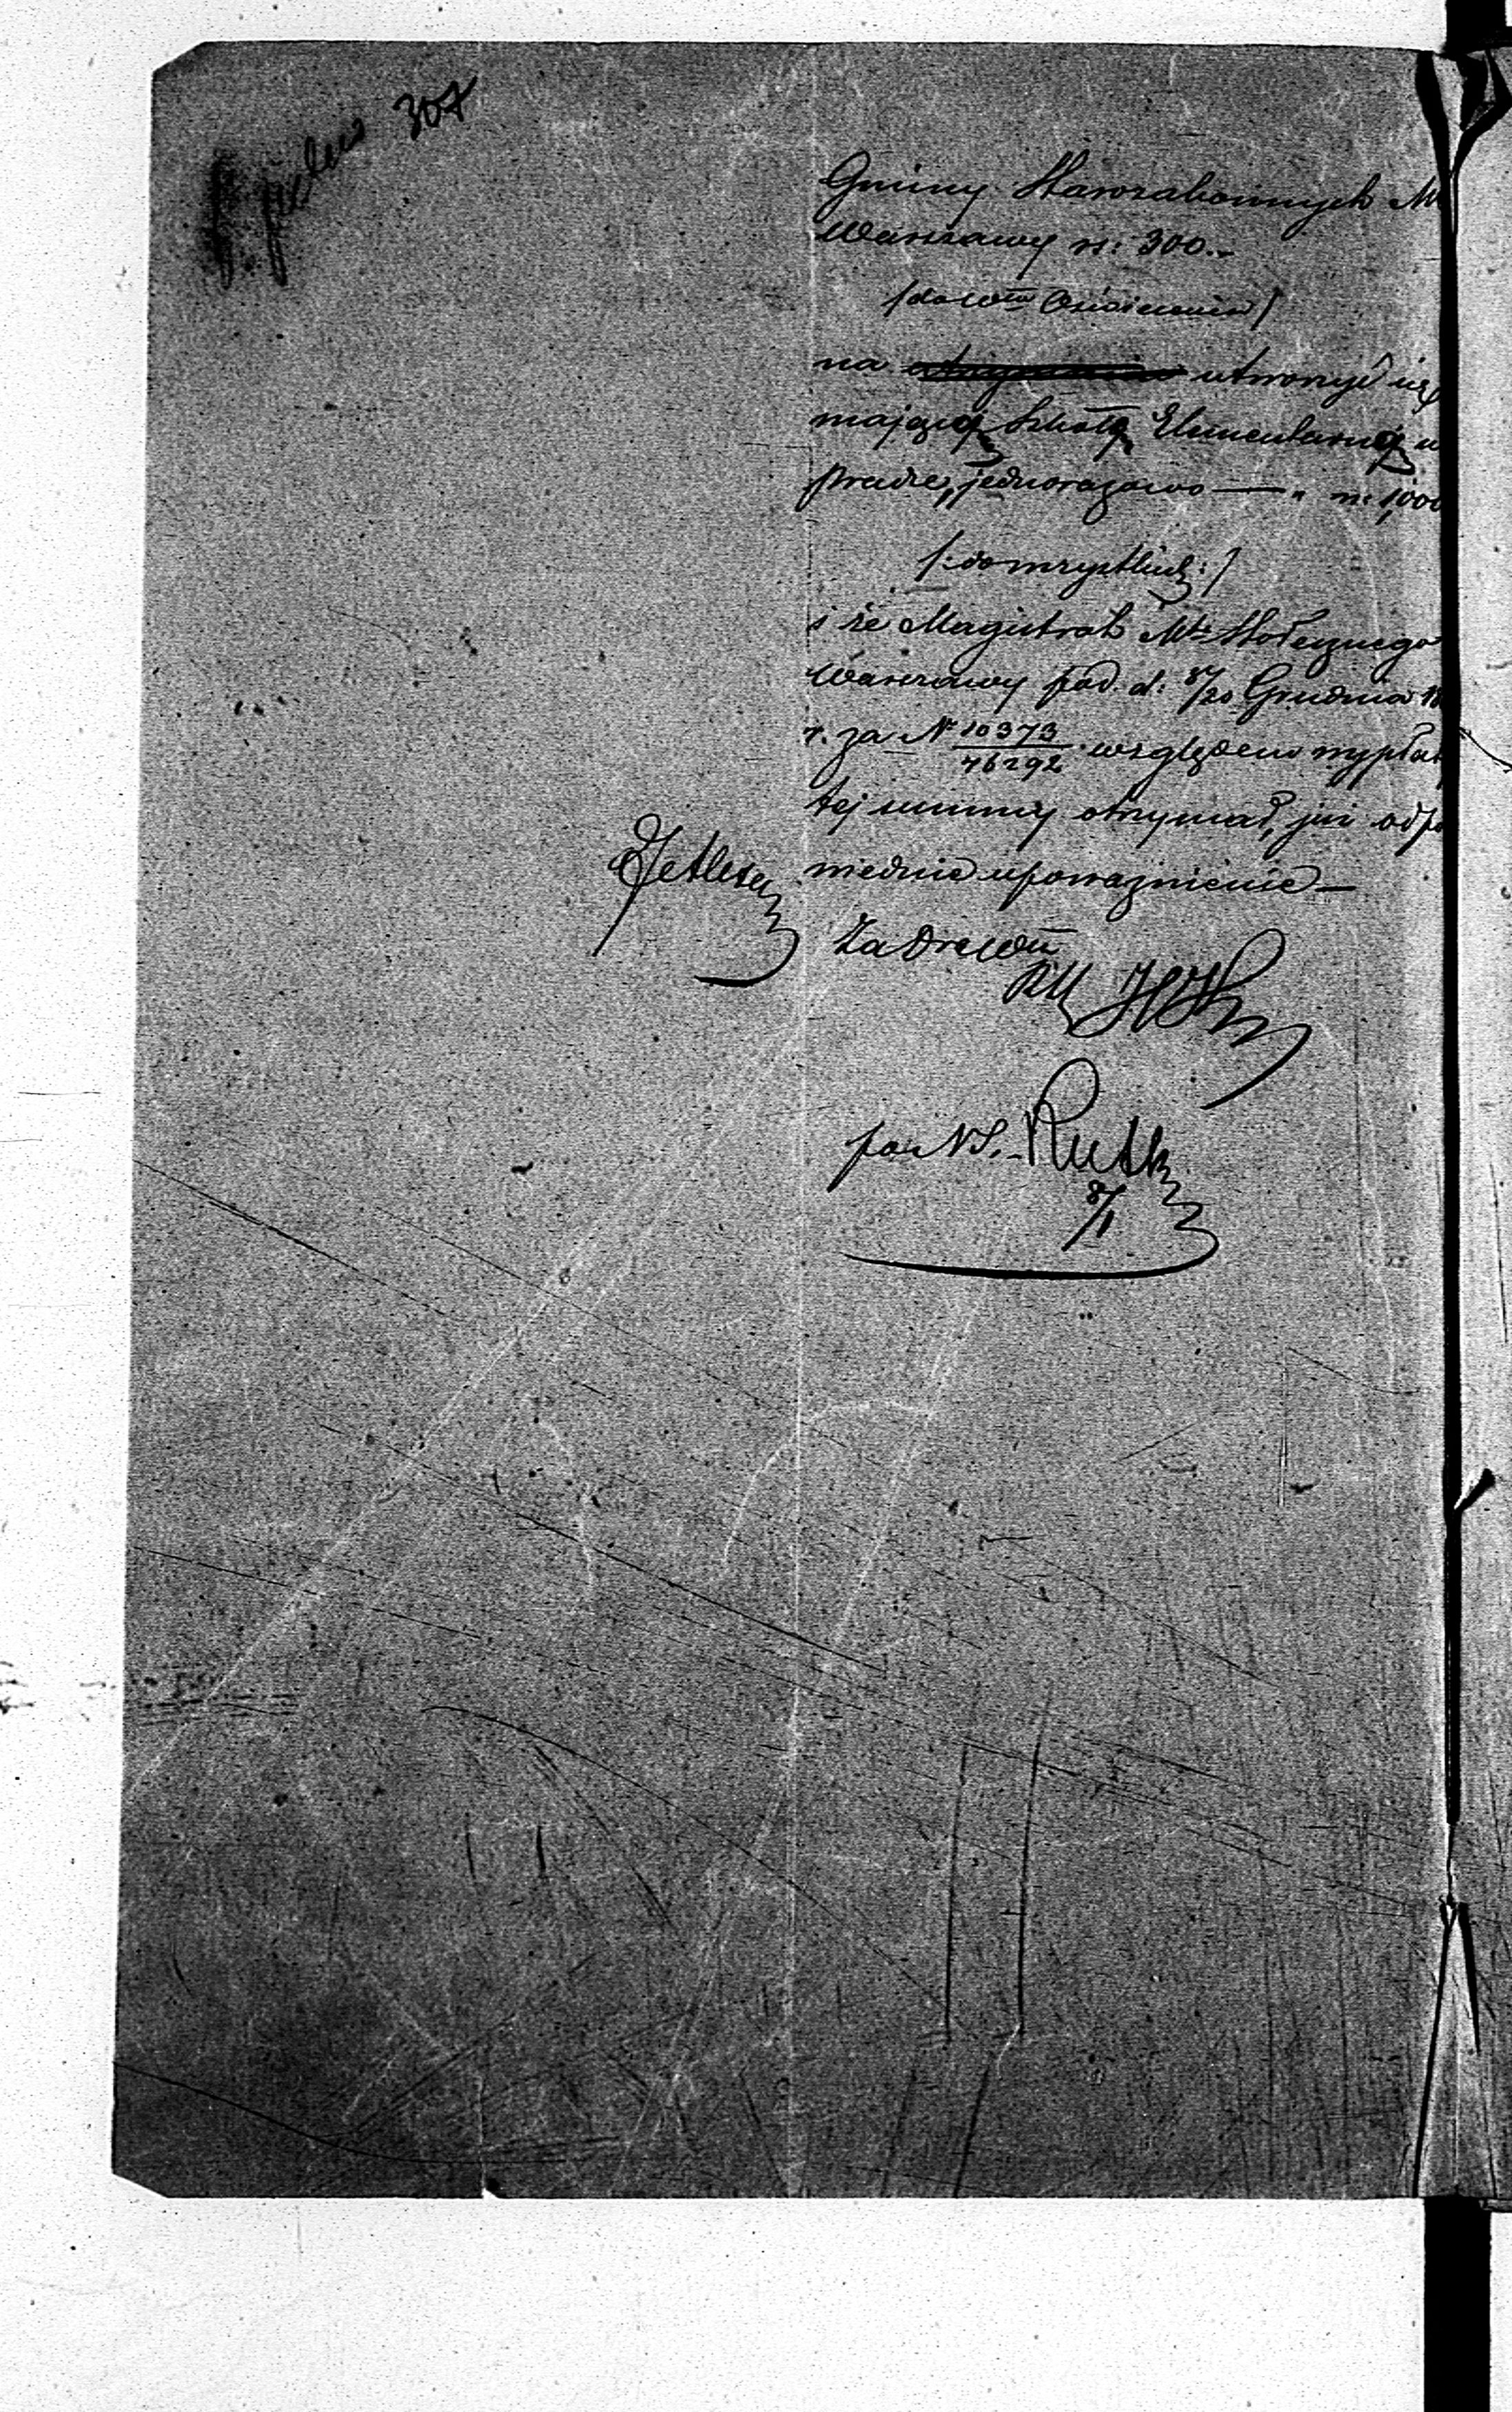 307
Gminy Starozakonnych M
Warszawy rs: 300.-
na utworzyć się
mającą Szkołę Elementarną w
Pradze, jednorazowo — " rs: 1,000
/:do wszystkich:/
i że Magistrat Mta Stołecznego
Warszawy pod. d: 8/20 Grudnia 18
r. za N 10373/76292 względem wypłat
tej summy otrzymał, już odpo
wiednie upoważnienie —
Za Dre Wu
po NS. Rutk
8/1